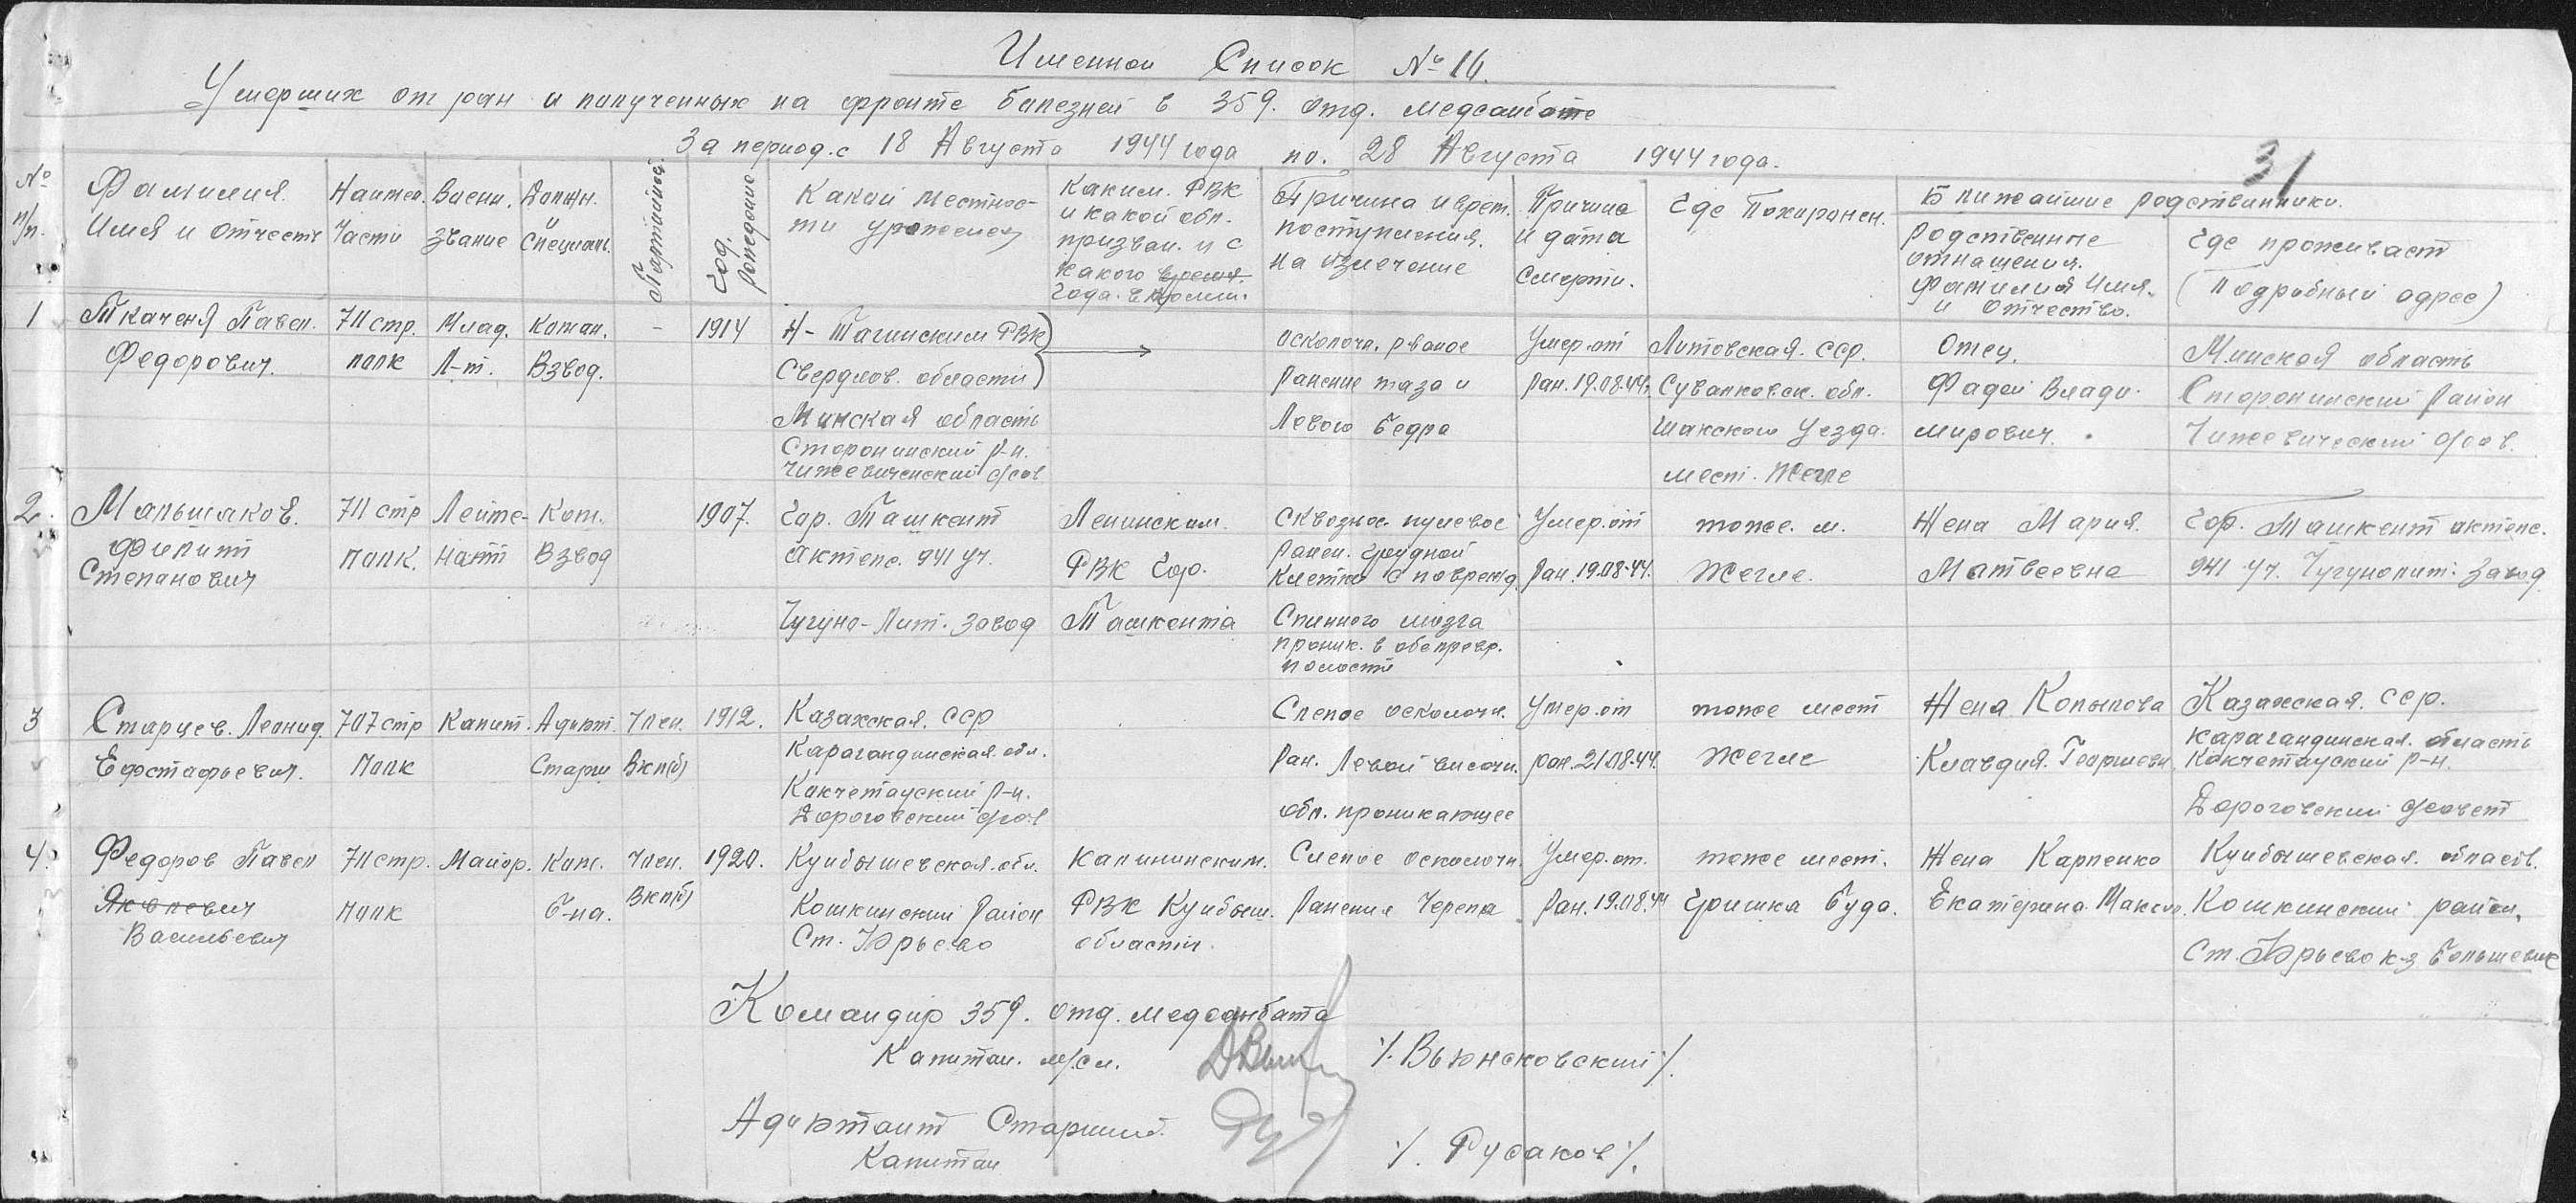 Именной Список № 16.
Умерших от ран и полученных на фронте болезней в 359. отд. медсанбате
За период.с 18 Августа 1944 года по. 28 Августа 1944 года.
31
№ п/п.
Фамилия. Имя и отчеств
Наимен. Части
Воени. звание
Должн. и Специал.
Партийность
Год. Рождения
Какой местнос-
ти уроженец
Каким. РВК
и какой обл.
призван. и с
какого время.
года. в Кросии.
Причина и врем.
поступления.
на излечение
Причина
и дата
Смерти.
Где Похоронен.
Ближайшие родственники.
Родственные
отнашения.
Фамилия Имя.
и отчество.
Где проживает
(Подробный адрес)
1
Ткаченя Павел.
Федорович.
711 стр.
полк
Млад.
Л-т.
Коман.
Взвод.
-
1914
Н-Тагинским РВК
Свердлов. области
Минская область
Старонинский р-н.
Чижевиченский с/сов
осколочн. рваное
Ранение таза и
Левого бедра
Умер.от
Ран. 19.08.44.
Литовская. сср.
Сувалковск. обл.
Шакского уезда.
мест. Жегле
Отец.
Фадей Влади-
мирович.
Минская область
Старонинский Район
Чижевический с/сов.
2.
Малышаков.
Филипп
Степанович
711 стр
полк.
Лейте-
нант
Ком.
Взвод
1907.
Гор. Ташкент
Актепе. 941 уч.
Чугуно-Лит. Завод
Ленинским.
РВК Гор.
Ташкента
Сквозное пулевое
Ранен. грудной
клетки с поврежд.
Спинного мозга
проник. в обе плевр.
полости
Умер.от
Ран. 19.08.44.
тоже. м.
Жегле.
Жена Мария.
Матвеевна
Гор. Ташкент актепе.
941 уч. Чугунолит. Завод
3
Старцев. Леонид.
Ефстафьевич.
707 стр
полк
Капит.
Адъют.
Старш
Член.
Вкп(б)
1912.
Казахская. сср
Карагандинская обл.
Кокчетауский р-н.
Дороговский с/сов
Слепое осколочн.
Ран. Левой височн.
обл. проникающее
Умер.от
ран. 21.08.44.
тоже мест
Жегле
Жена Копылова
Клавдия. Георгиевн.
Казахская. сср.
Карагандинская. область
Кокчетауский р-н.
Дороговский с/совет
4.
Федоров Павел
Яковлевич
Васильевич
711 стр.
полк
Майор.
Ком.
б-на.
Член.
Вкп(б)
1920.
Куйбышевская. обл.
Кошкинский Район
Ст. Юрьево
Калининским.
РВК Куйбыш.
области.
Слепое осколочн.
Ранения Черепа
Умер.от.
Ран. 19.08.44
тоже мест.
Гришка Буда.
Жена Карпенко
Екатерина Макси.
Куйбышевская. област.
Кошкинский район.
Ст. Юрьево к-з Большевик
Командир 359. отд. медсанбата
Капитан. м/сл. /. Вьюнсковский /.
Адъютант Старший.
Капитан /. Русаков /.